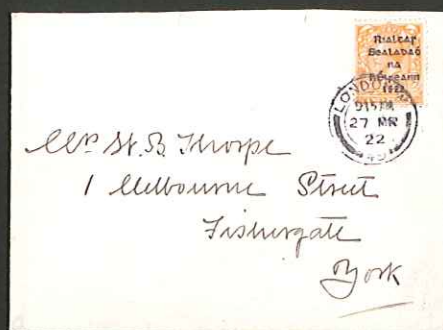 Rialtar
Sealadac
na
hÉireann
1922
LONDON
915 PM
27 MR
22
Mr W. B. Thorpe
1 Melbourne Street
Fishergate
York